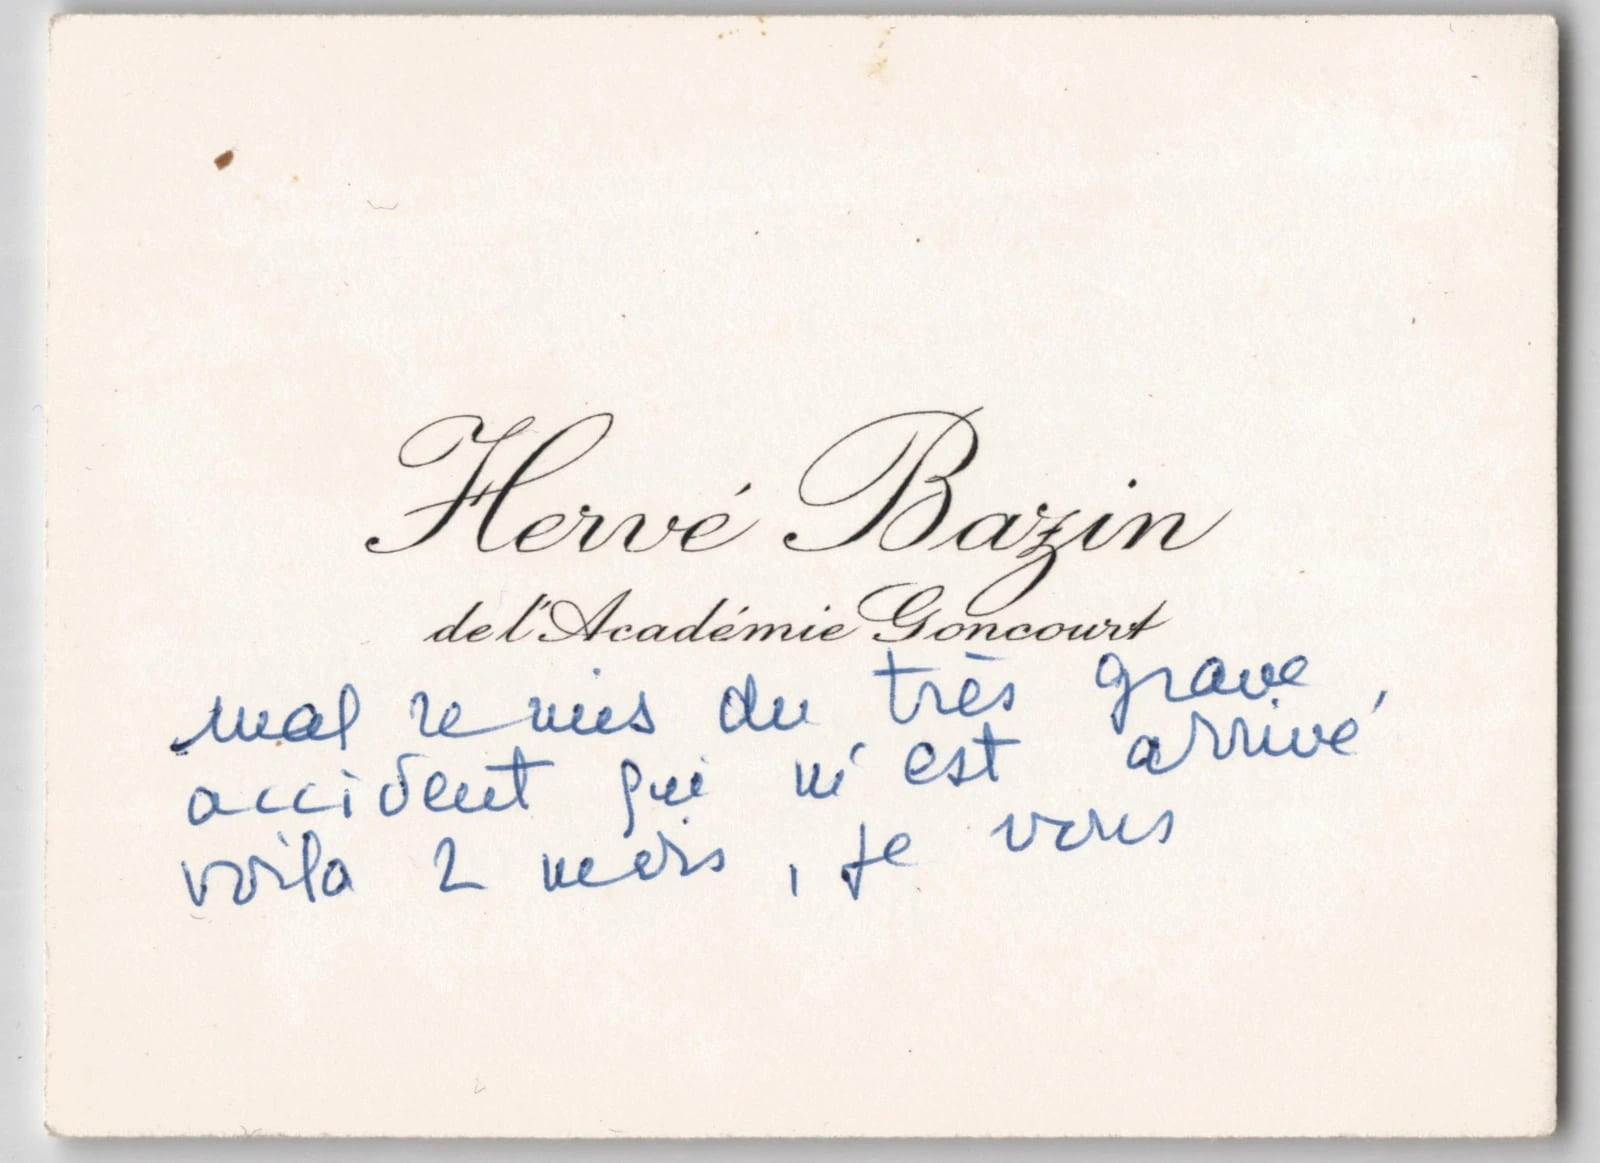 Hervé Bazin
de l'Académie Goncourt
mal remis du très grave
accident qui m'est arrivé,
voilà 2 mois, je vous